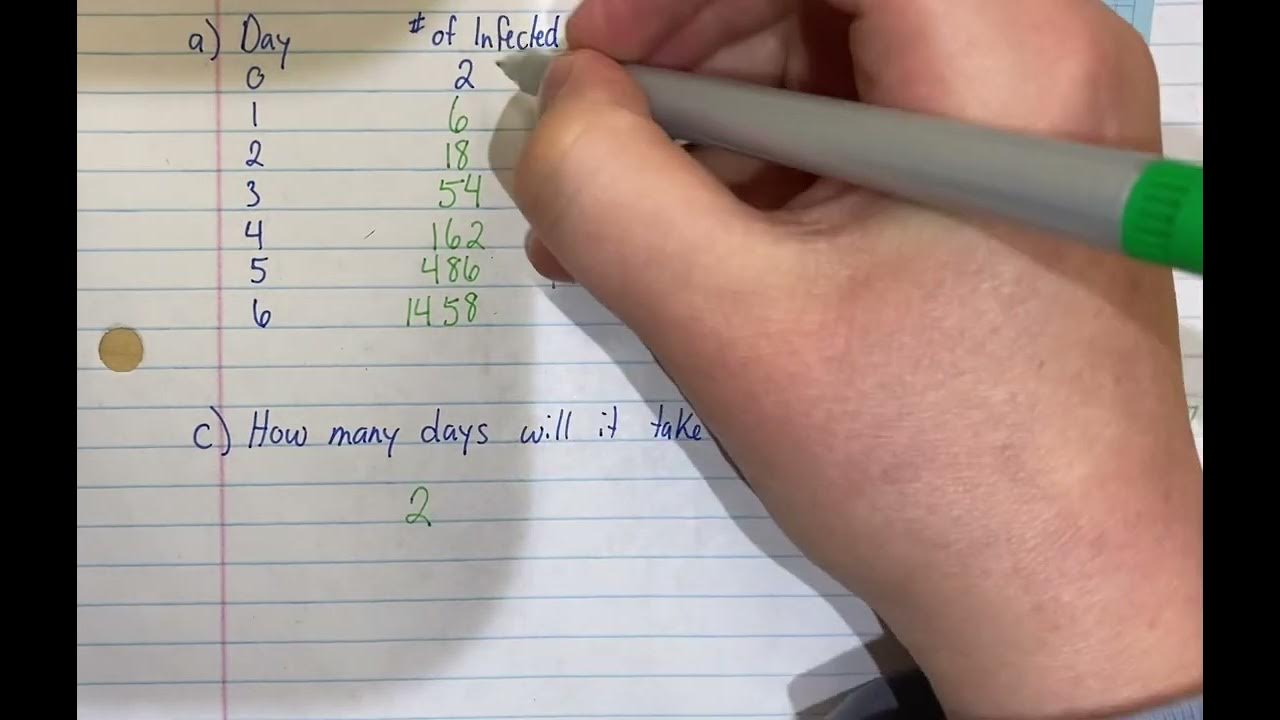 a) Day # of Infected
0 2
1 6
2 18
3 54
4 162
5 486
6 1458
c) How many days will it take
2